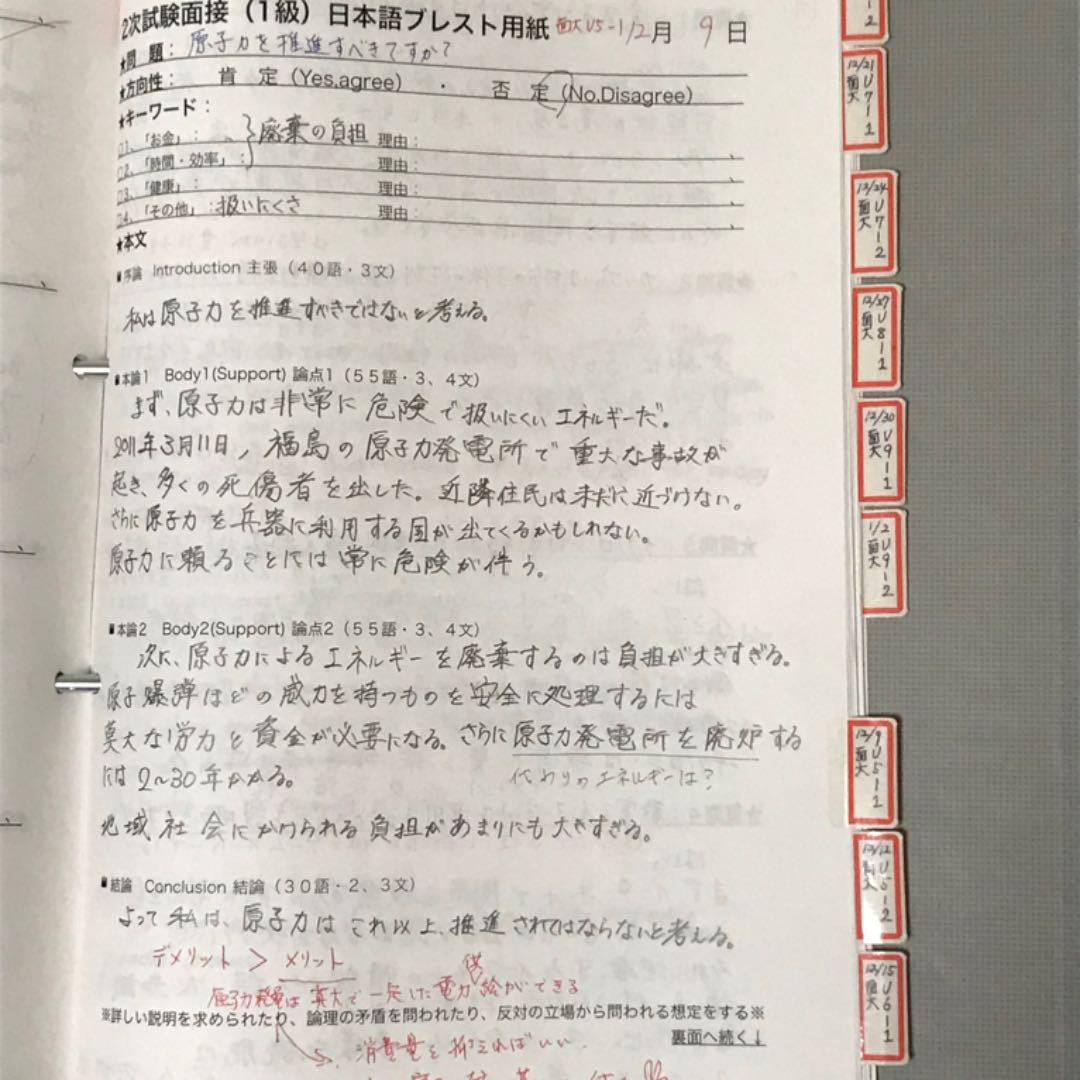 2次試験面接（1級）日本語ブレスト用紙 面大U5-1 12月 9日
★問　題：原子力を推進すべきですか？
★方向性：　肯　定（Yes,agree）　・　否　定（No,Disagree）
★キーワード：
□1、「お金」：　理由：
廃棄の負担
□2、「時間・効率」：　理由：
□3、「健康」：　理由：
□4、「その他」：扱いにくさ　理由：
★本文
■序論　Introduction 主張（40語・3文）
私は原子力を推進すべきではないと考える。
■本論1　Body1(Support) 論点1（55語・3、4文）
まず、原子力は非常に危険で扱いにくいエネルギーだ。
2011年3月11日，福島の原子力発電所で重大な事故が
起き、多くの死傷者を出した。近隣住民は未だに近づけない。
さらに原子力を兵器に利用する国が出てくるかもしれない。
原子力に頼ることには常に危険が伴う。
■本論2　Body2(Support) 論点2（55語・3、4文）
次に、原子力によるエネルギーを廃棄するのは負担が大きすぎる。
原子爆弾ほどの威力を持つものを安全に処理するには
莫大な労力と資金が必要になる。さらに原子力発電所を廃炉する
には2〜30年かかる。　代わりのエネルギーは？
地域社会にかけられる負担があまりにも大きすぎる。
■結論　Conclusion 結論（30語・2、3文）
よって私は、原子力はこれ以上、推進されてはならないと考える。
デメリット ＞ メリット
原子力発電は莫大で一定した電力供給ができる
※詳しい説明を求められたり、論理の矛盾を問われたり、反対の立場から問われる想定をする※
裏面へ続く↓
消費量を抑えればいい.
12/21 面大 U7-1
12/24 面大 U7-2
12/27 面大 U8-1
12/30 面大 U9-1
1/2 面大 U9-2
12/9 面大 U5-1
12/12 面大 U5-2
12/15 面大 U6-1